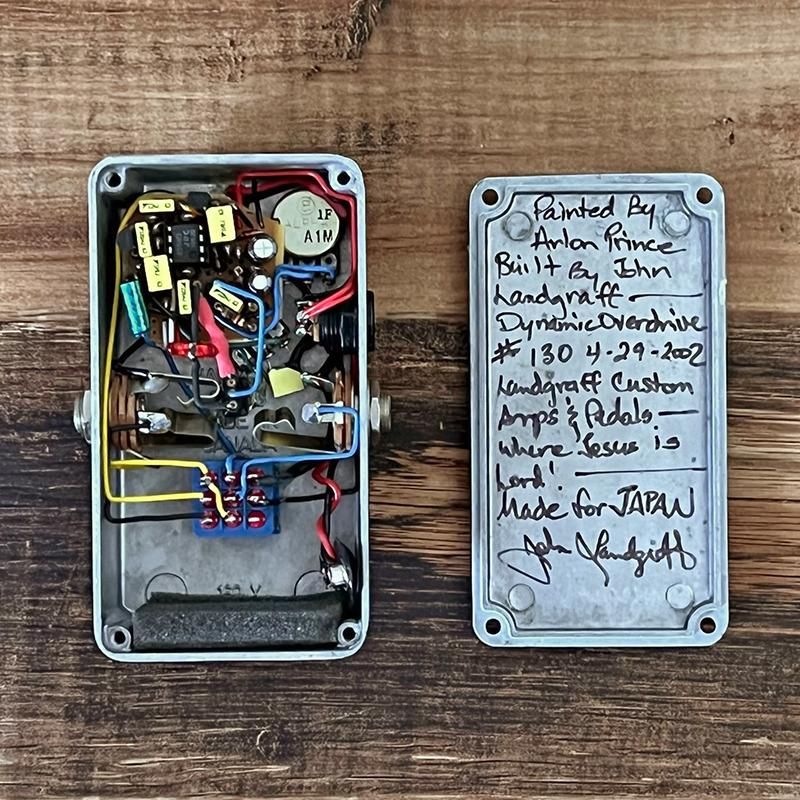 1F
A1M
Painted By
Arlon Prince
Built By John
Landgraff —
Dynamic Overdrive
# 130 4-29-2002
Landgraff Custom
Amps & Pedals —
Where Jesus is
Lord! —
Made for JAPAN
John Landgraff